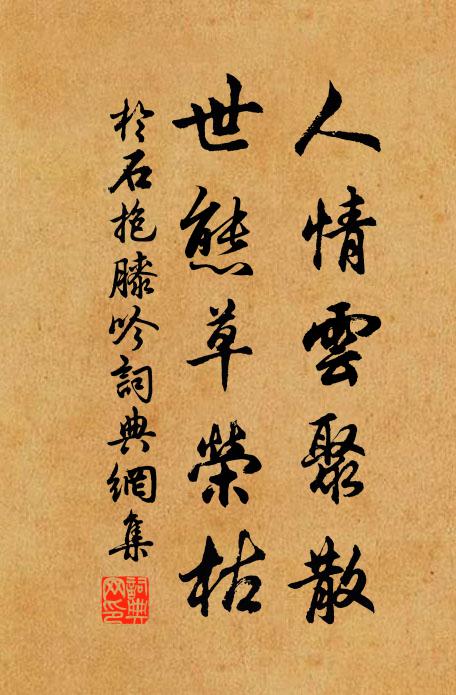 人情雲聚散
世態草榮枯
於石抱膝吟詞典網集
詞典網印